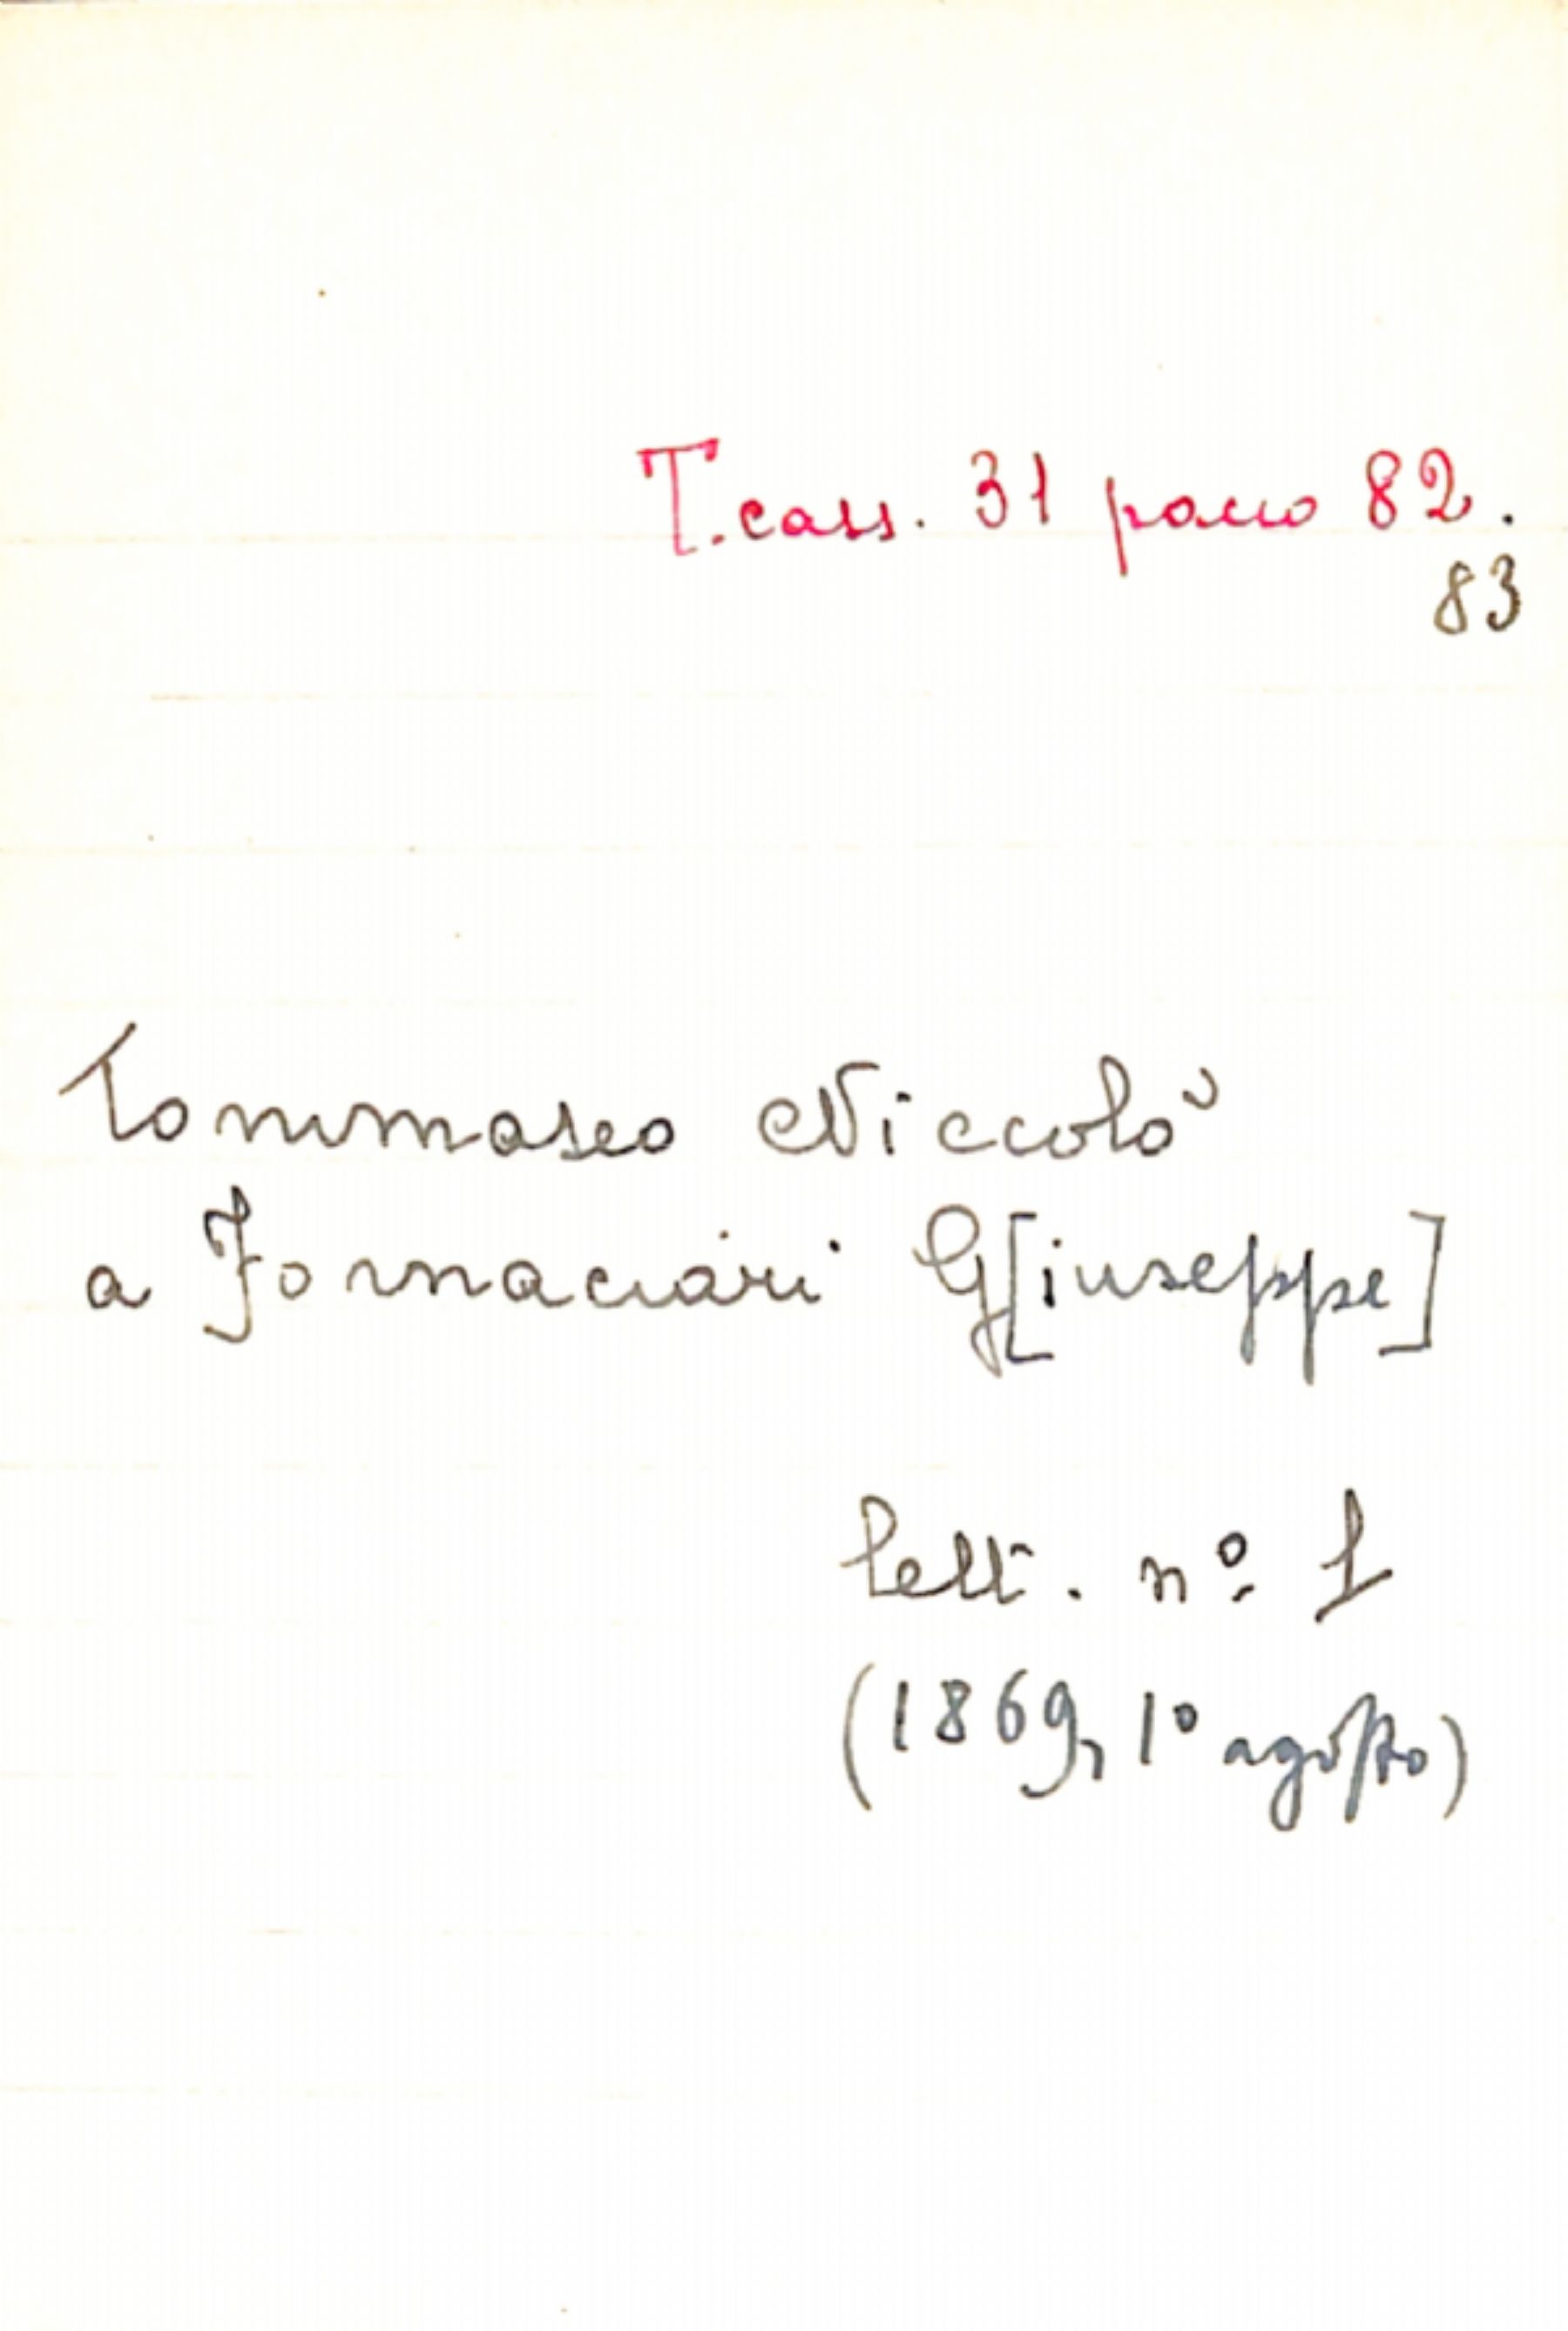 T. cass. 31 pacco 82.
83
Tommaseo Niccolò
a Fornaciari G[iuseppe]
lett. nº 1
(1869, 1º agosto)